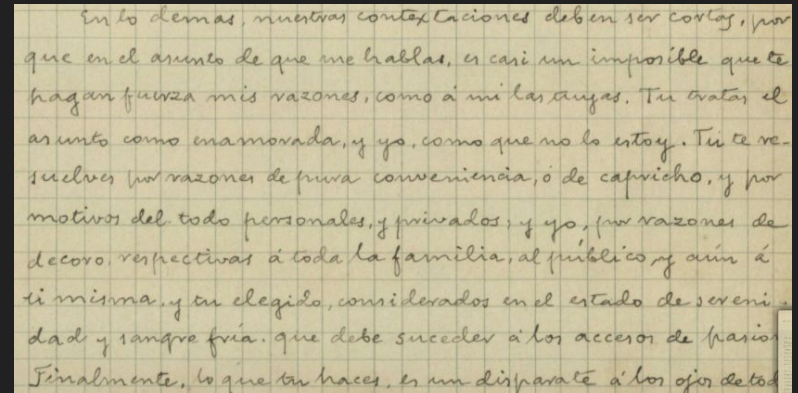 En lo demas, nuestras contextaciones deben ser cortas, por
que en el asunto de que me hablas, es casi un imposible que te
hagan fuerza mis razones, como á mi las tuyas. Tu tratas el
asunto como enamorada, y yo, como que no lo estoy. Tu te re-
suelves por razones de pura conveniencia, ó de capricho, y por
motivos del todo personales, y privados; y yo, por razones de
decoro, respectivas á toda la familia, al público, y aún á
ti misma, y tu elegido, considerados en el estado de sereni-
dad y sangre fria, que debe suceder á los accesos de pasion
Finalmente, lo que tu haces, es un disparate á los ojos de tod